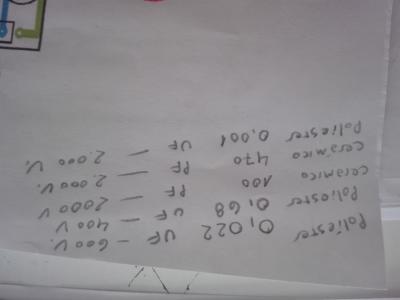 Poliester 0,022 UF - 600 V.
Poliester 0,68 UF - 400 V
ceramico 100 PF - 2000 V
ceramico 470 PF - 2.000 V.
Poliester 0,001 UF - 2.000 V.